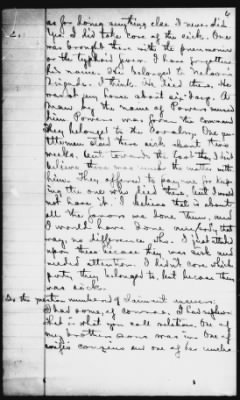 6
as for doing anything else I never did.
Yes I did take care of the sick. One
was brought there with the pneumonia
or the typhoid fever. I have forgotten
his name. He belonged to Nelson's
brigade, I think. He died there. He
was at my house about six days. A
man by the name of Powers nursed
him. Powers was from the command
they belonged to the Cavalry. One gen-
tleman stayed there sick about two
weeks, but towards the last they I did
believe there was much the matter with
him. They offered to pay me for keep-
ing the one who died there, but I would
not have it. I believe that is about
all the favors we done them, and
I would have done mine that
way no difference who. I just
to them because they was sick and
needed attention. I didn't care which
party they belonged to, but because they
was sick.
To the question numbered 9 claimant answers:
I had some, of course. I had nephews
that is what you call relation. One of
my brother's sons was in. One of
wife's cousins and one of her uncles